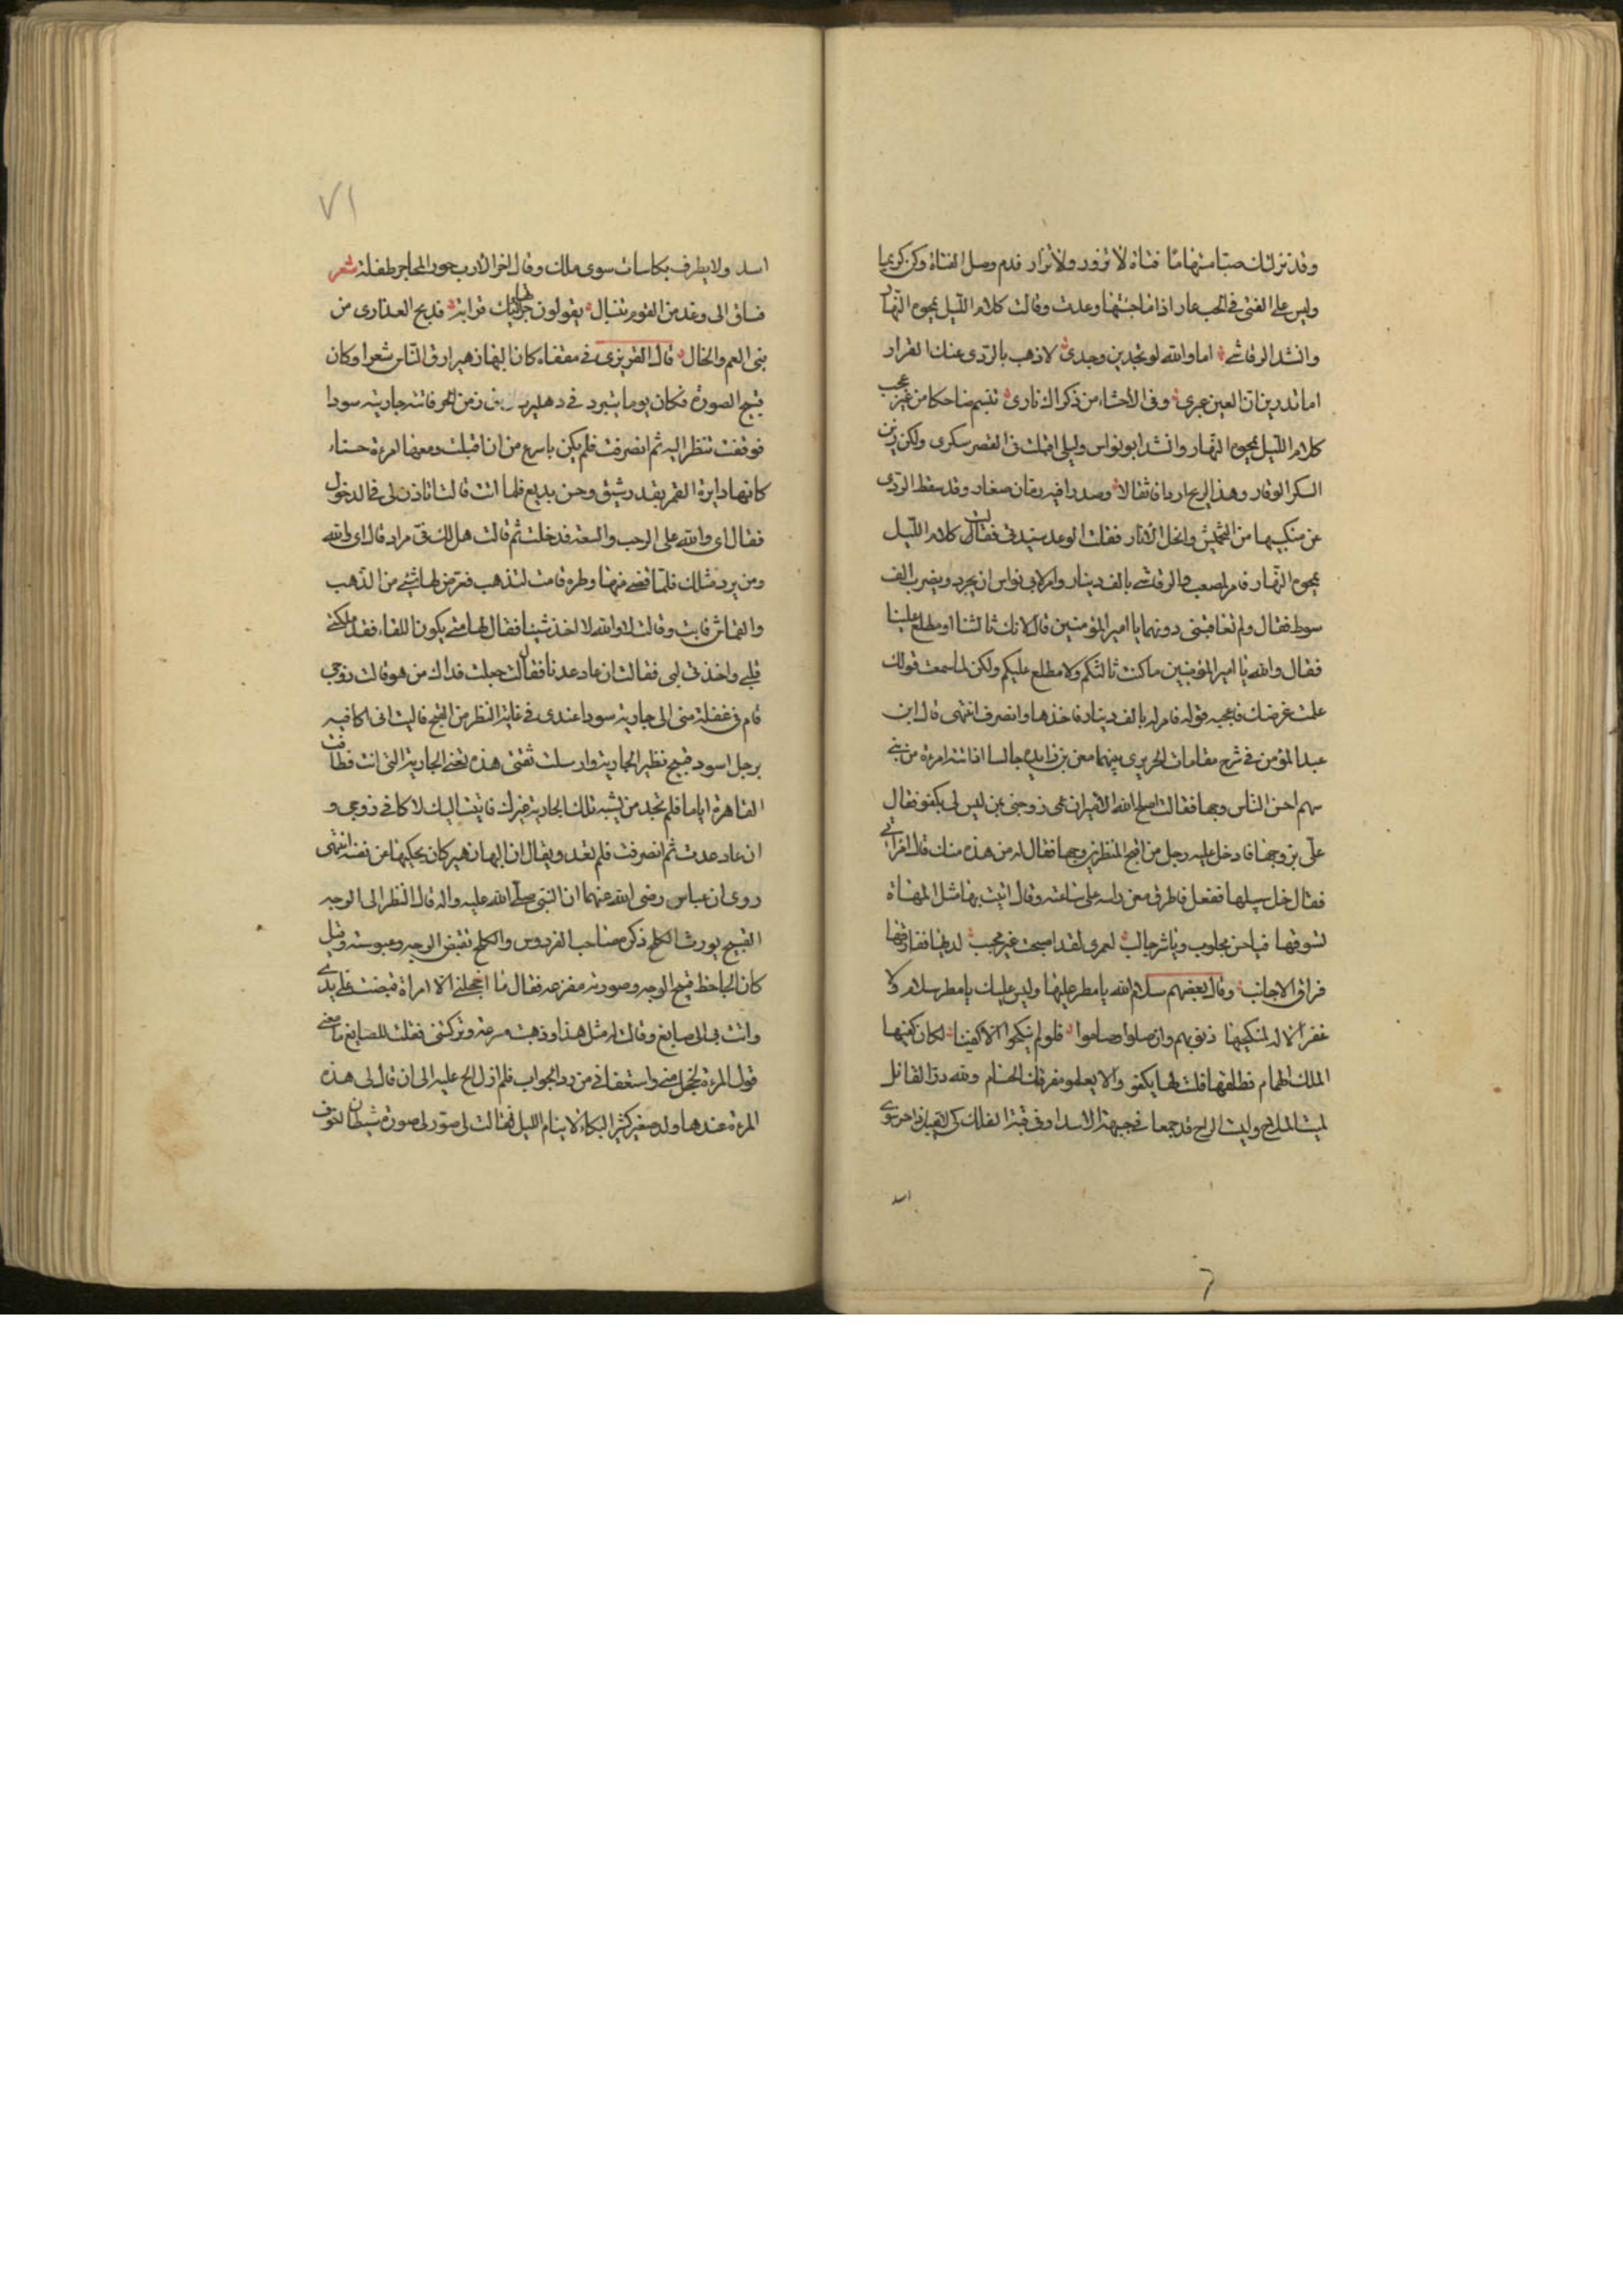 وقد تركتك صبا مستهاما فتاة لا تزور ولا تزار قدم وصل الفتاة وكن كريما
وليس على الفتى في الحب عار اذا ما جئتها وعدت وقالت كلام الليل يمحوه النهار
وانشد الرقاشي اما والله لو تجدين وجدي لاذهب بالردى عنك القرار
اما تدرين ان العين عبرى وفي الأحشاء من ذكراك ناري تبسم ضاحكا من غير عجب
كلام الليل يمحوه النهار وانشد ابو نواس وليلى اقبلت في القصر سكرى ولكن زين
السكر الوقار وهذا الريح اردافا ثقالا وصدرا فيه رمان صغار وقد سقط الردى
عن منكبيها من التجميش وانحل الازار فقلت الوعد سيدتي فقالت كلام الليل
يمحوه النهار فامر لمصعب والرقاشي بالف دينار وامر لابي نواس ان يجرد ويضرب الف
سوط فقال ولم تعاقبني دونهما يا امير المؤمنين قال لانك ثالثنا او مطلع علينا
فقال والله يا امير المؤمنين ما كنت ثالثكم ولا مطلع عليكم ولكن لما سمعت قولك
علمت غرضك فاعجبه قوله فامر له بالف دينار فاخذها وانصرف انتهى قال ابن
عبد المؤمن في شرح مقامات الحريري بينما معن بن زايدة جالسا اذ اتته امرءة من بني
سهم احسن الناس وجها فقالت اصلح الله الامير ان عمي زوجني من ليس لي بكفو فقال
علي بزوجها فادخل عليه رجل من اقبح المنظرين وجها فقال له من هذه منك قال امراتي
فقال خل سبيلها ففعل فاطرق معن راسه على ساعته وقال اتيت بها مثل المهاة
تسوقها فيا حسن مجلوب ويا شر جالب لعمري لقد اصبحت غير محبب لديها ففارقها
فراق الاجانب وقال بعضهم سلام الله يا مطر عليها وليس عليك يا مطر سلام ولا
غفر الاله لمنكحيها ذنوبهم وان صلوا وصاموا فلو لم ينكحوا الا كفيا لكان كفيها
الملك الهمام فطلقها فلست لها بكفو والا يعلو مفرقك الحسام ولله در القائل
ليت الملاح وليت الراح قد جمعا في جبهة الاسد او في قبة الفلك كي لا يقبل ذا حر سوى
اسد
٧١
اسد ولا يطرف بكاسات سوى ملك وقال اخر الا رب حور المحاجر طفلة شعر
فساق الى وغد من القوم تنبال يقولون جراليها تيك قرابة فديح العذارى من
بني العم والخال قال المقريزي في مقفاه كان البهاء زهير ارق الناس شعرا وكان
قبيح الصورة فكان يوما يتبرد في دهليز في زمن الحر فاتته جارية سودا
فوقفت تنظر اليه ثم انصرفت فلم يكن باسرع من ان اقبلت ومعها امرءة حسناء
كانها دايرة القمر بقد رشيق وحسن بديع فلما اتت قالت اتاذن لي في الدخول
فقال اي والله على الرحب والسعة فدخلت ثم قالت هل لك في مراد قال اي والله
ومن يرد مثلك فلما قضى منها وطره قامت لتذهب فعرض لها شيء من الذهب
والقماش فابت وقالت لا والله لا اخذ شيئا فقال لها متى يكون اللقاء فقد ملكت
قلبي واخذت لبي فقالت ان عاد عدنا فقال جعلت فداك من هو قالت زوجي
قام في غفلة مني الى جارية سودا عندي في غاية النظر من القبح فاليت اني اكافيه
برجل اسود قبيح نظير الجارية وارسلت ثقتي هذه تعني الجارية التي اتت فطافت
القاهرة اياما فلم تجد من يشبه تلك الجارية غيرك فاتيت اليك لاكافي زوجي و
ان عاد عدت ثم انصرفت فلم تعد ويقال ان البها زهير كان يحكيها عن نفسه انتهى
روى ابن عباس رضي الله عنهما ان النبي صلى الله عليه واله قال النظر الى الوجه
القبيح يورث الكلح ذكره صاحب الفردوس والكلح تقبض الوجه وعبوسته وقيل
كان الجاحظ قبيح الوجه وصورته مفزعة فقال ما اخجلني الا امراة قبضت على يدي
واتت بي الى صايغ وقالت له مثل هذا وذهبت مسرعة وتركتني فقلت للصايغ ما معنى
قول المرءة فخجل مني واستعفاني من رد الجواب فلم ازل الح عليه الى ان قال لي هذه
المرءة عندها ولد صغير كثير البكاء لا ينام الليل فقالت لي صور لي صورة شيطان لتخوف